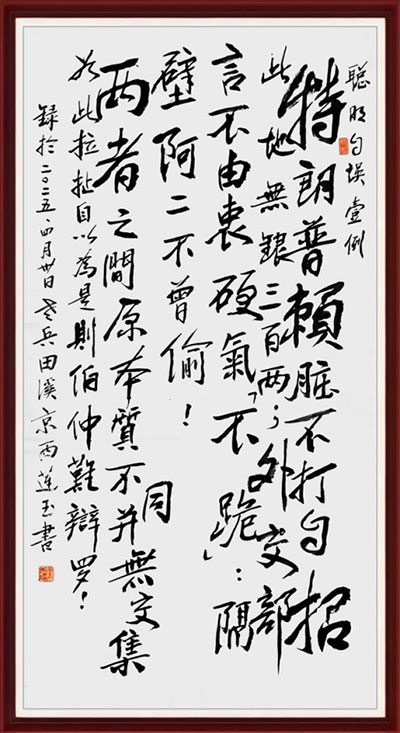 聪明自误壹例
特朗普賴脏不打自招
此地無銀三百两；外交部
言不由衷硬氣「不跪」：隔
壁阿二不曾偷！
两者之間原本質不同并無交集
如此拉扯自以為是則伯仲難辯罗！
録於二〇二五、四月卅日老兵田溪京西蓮玉書